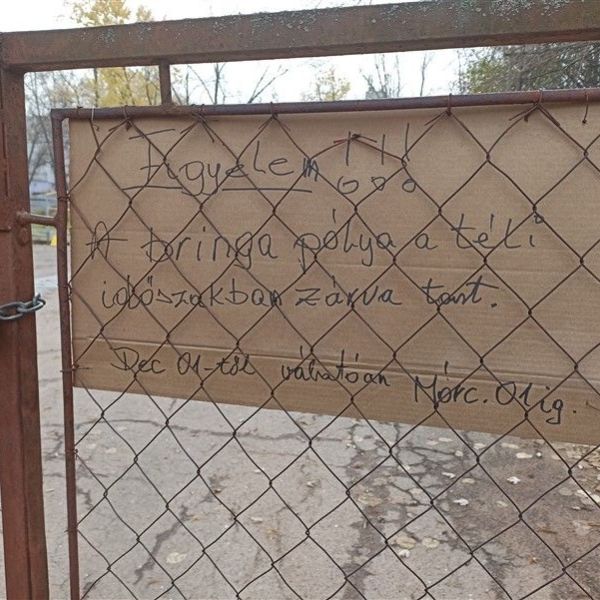 Figyelem!!!
A bringa pálya a téli
időszakban zárva tart.
Dec 01-től várhatóan Márc. 01ig.